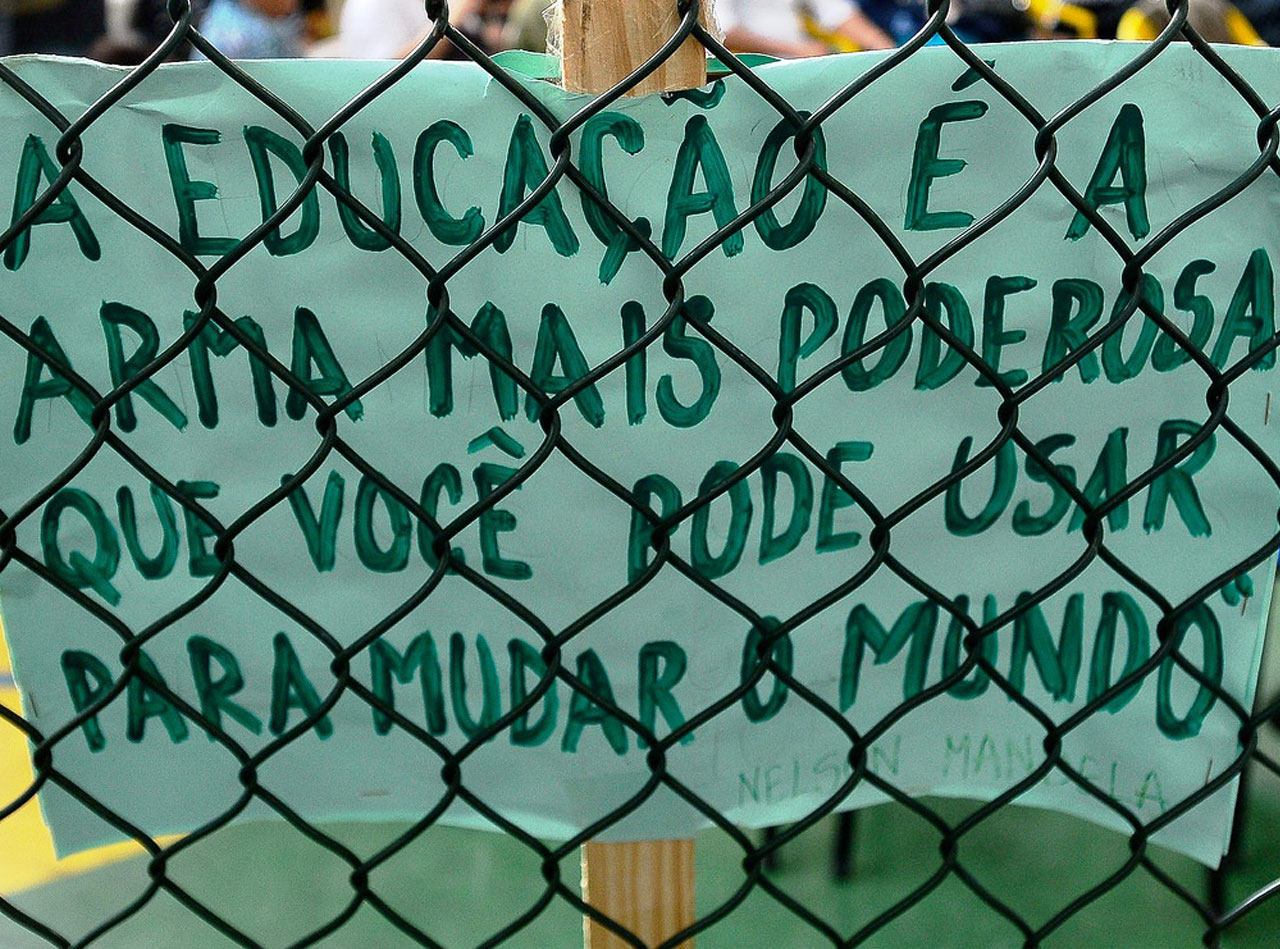 A EDUCAÇÃO É A
ARMA MAIS PODEROSA
QUE VOCÊ PODE USAR
PARA MUDAR O MUNDO"
NELSON MANDELA